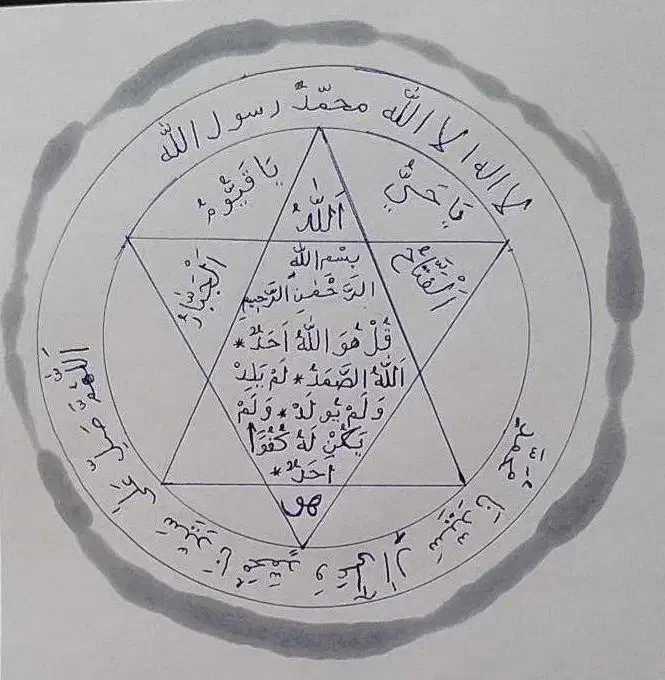 لا اله الا الله محمّدٌ رسول الله
يَا حَيُّ
يَا قَيُّومُ
اَللّٰهُ
اَلْفَتَّاحُ
اَلْجَبَّارُ
بِسْمِ اللّٰهِ
الرَّحْمٰنِ الرَّحِيمِ
قُلْ هُوَ اللّٰهُ اَحَدٌ *
اَللّٰهُ الصَّمَدُ * لَمْ يَلِدْ
وَلَمْ يُولَدْ * وَلَمْ
يَكُنْ لَهُ كُفُوًا
اَحَدٌ *
هو
اَللّٰهُمَّ صَلِّ عَلىٰ سَيِّدِنَا مُحَمَّدٍ وَعَلىٰ اٰلِ سَيِّدِنَا مُحَمَّدٍ